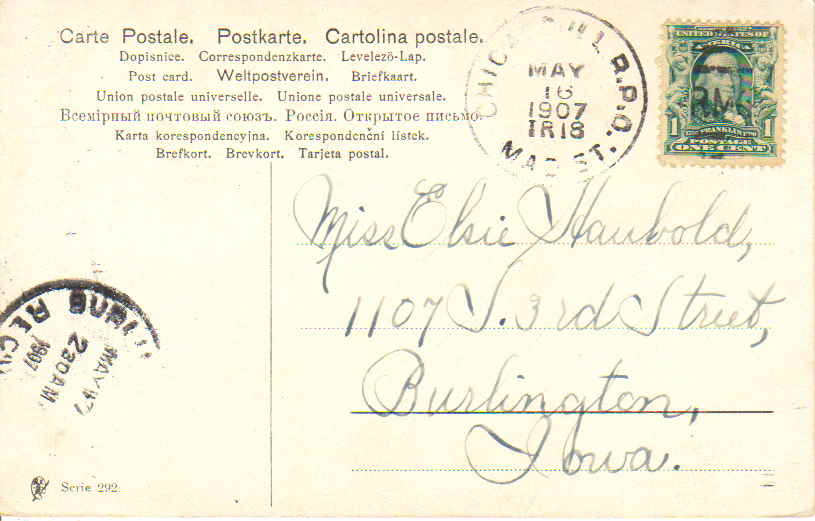 Carte Postale. Postkarte. Cartolina postale.
Dopisnice. Correspondenzkarte. Levelező-Lap.
Post card. Weltpostverein. Briefkaart.
Union postale universelle. Unione postale universale.
Всемірный почтовый союзъ. Россія. Открытое письмо.
Karta korespondencyjna. Korespondenční lístek.
Brefkort. Brevkort. Tarjeta postal.
R.P.O.
MAY
16
1907
TR18
UNITED STATES OF
AMERICA
RMS
1 FRANKLIN 1
POSTAGE
ONE CENT
Miss Elsie Haubold,
1107 S. 3rd Street,
Burlington,
Iowa.
REC'
MAY 17
1907
2 30 AM
Serie 292.